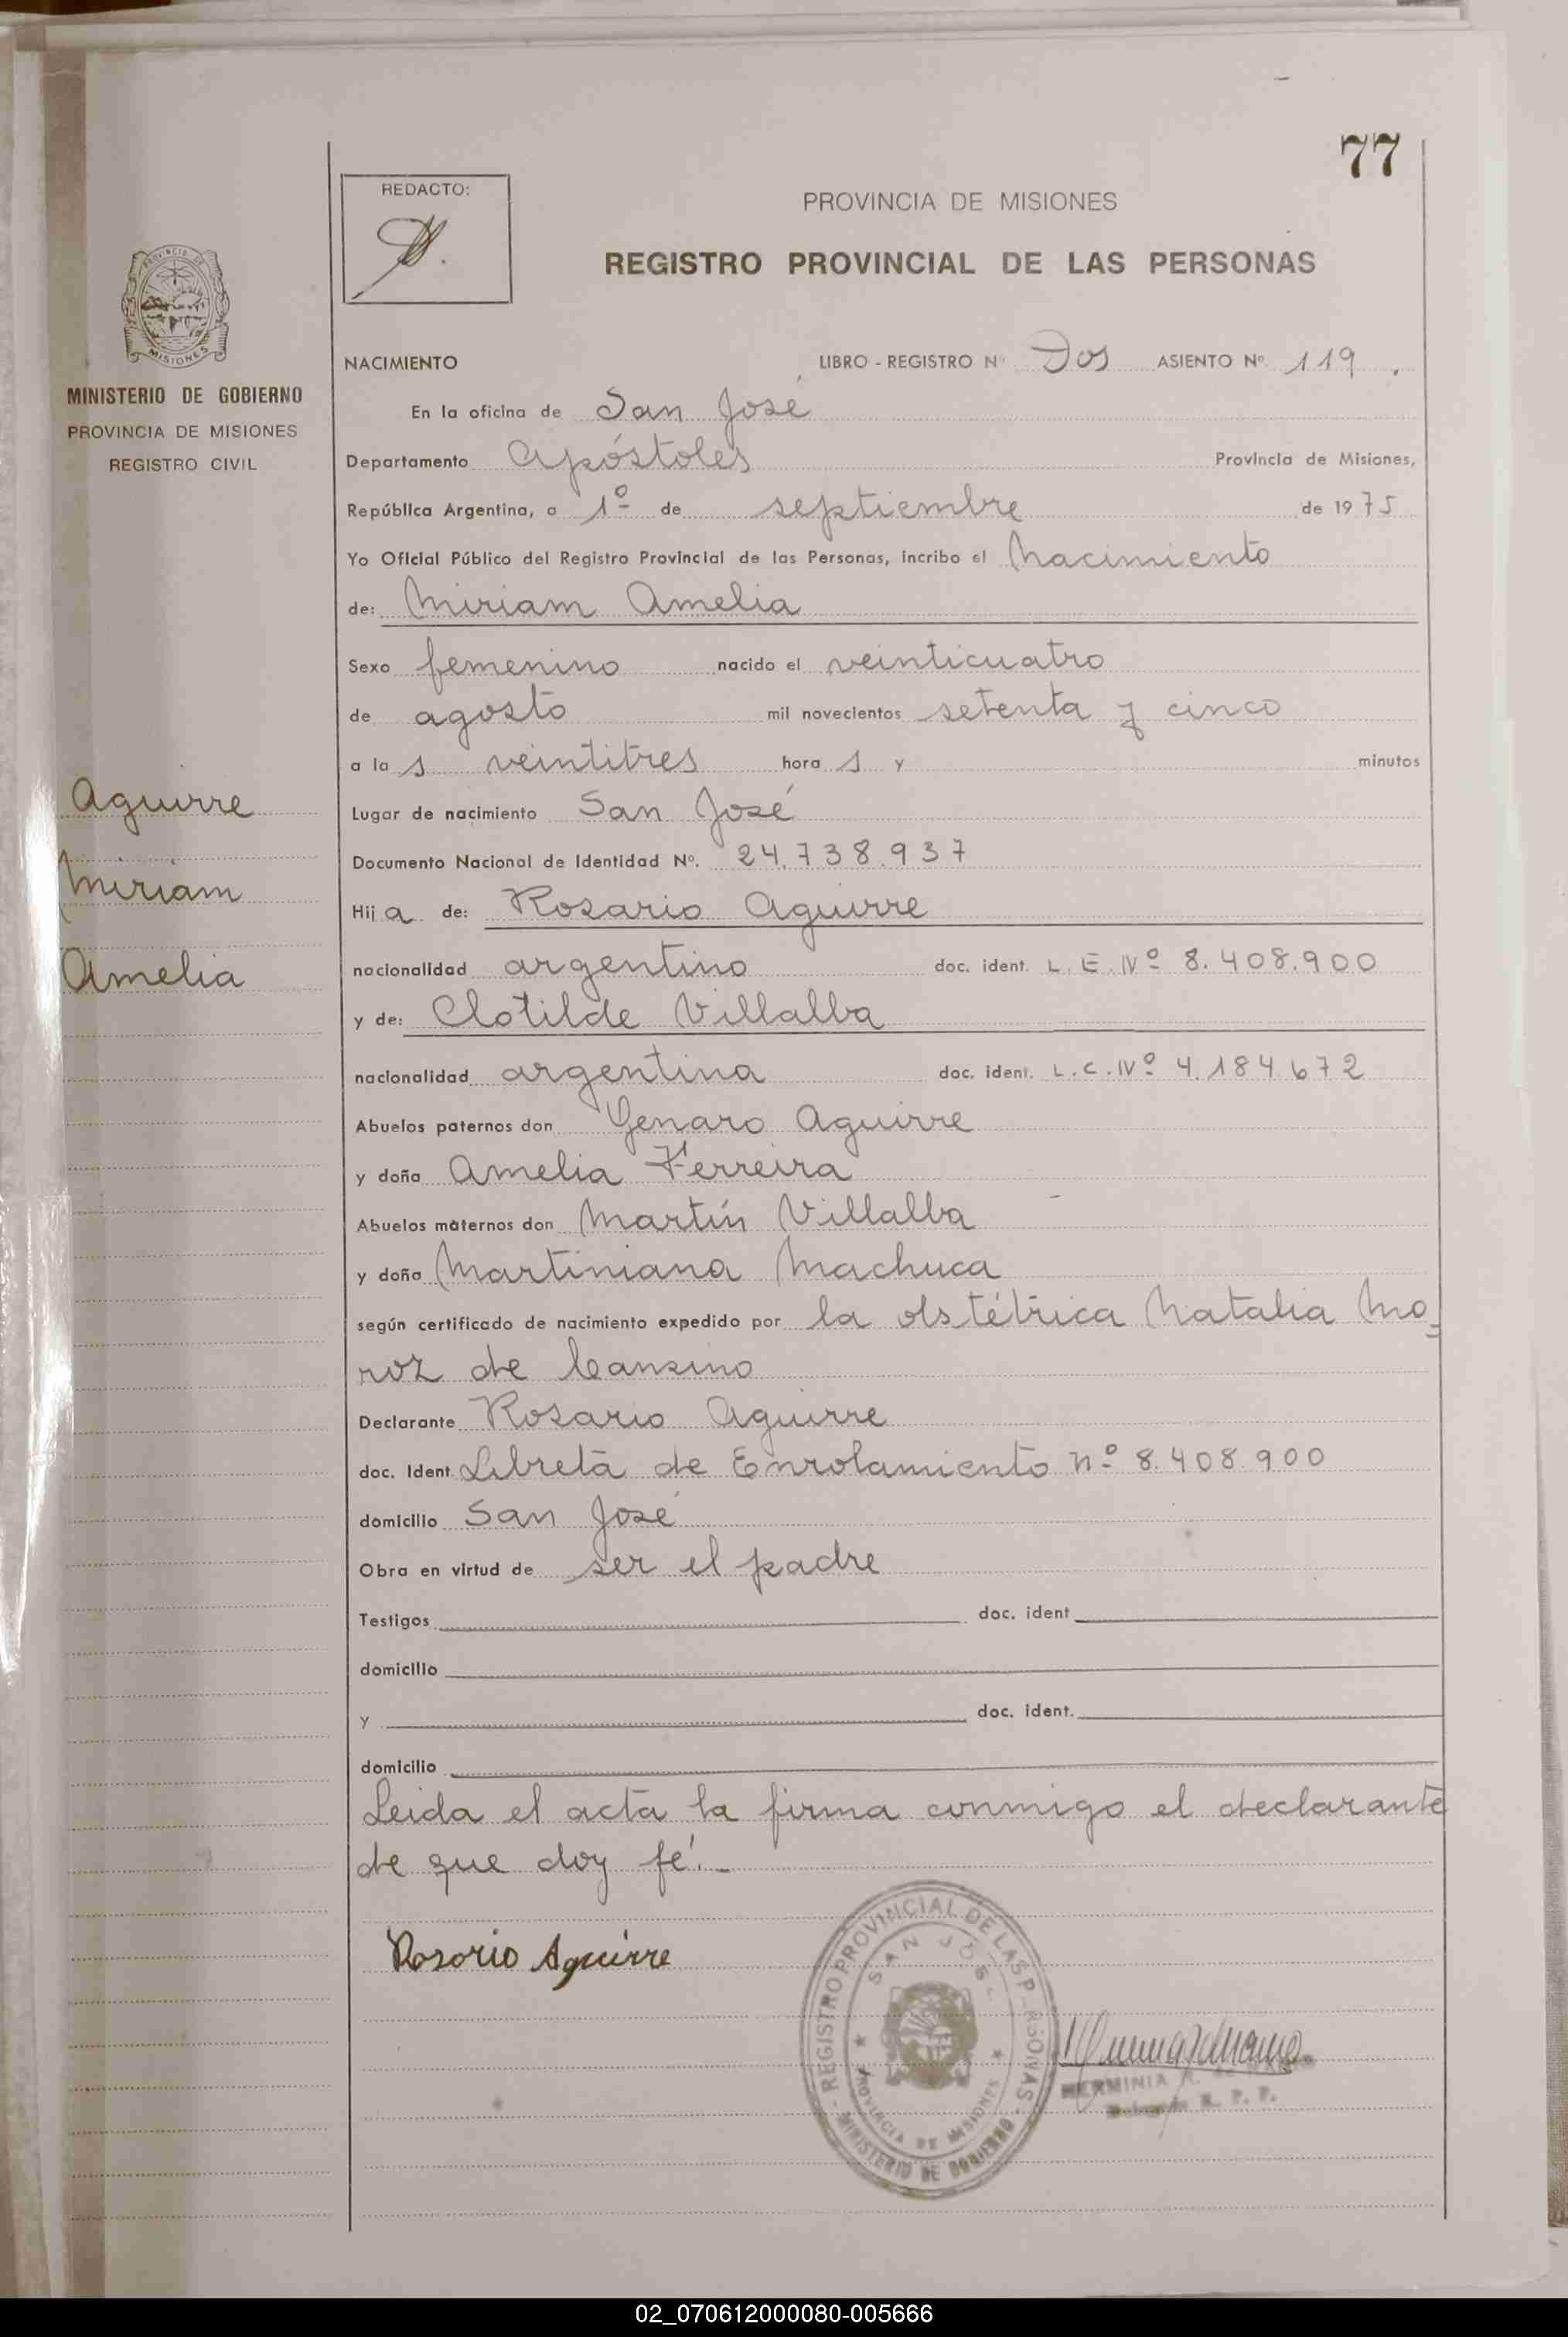 77
REDACTO:
PROVINCIA DE MISIONES
REGISTRO PROVINCIAL DE LAS PERSONAS
PROVINCIA DE
MISIONES
MINISTERIO DE GOBIERNO
PROVINCIA DE MISIONES
REGISTRO CIVIL
Aguirre
Miriam
Amelia
NACIMIENTO LIBRO - REGISTRO Nº Dos ASIENTO Nº 119.
En la oficina de San José
Departamento Apóstoles Provincia de Misiones,
República Argentina, a 1º de septiembre de 1975
Yo Oficial Público del Registro Provincial de las Personas, incribo el Nacimiento
de: Miriam Amelia
Sexo femenino nacido el veinticuatro
de agosto mil novecientos setenta y cinco
a la s veintitres hora s y minutos
Lugar de nacimiento San José
Documento Nacional de Identidad Nº. 24.738.937
Hij a de: Rosario Aguirre
nacionalidad argentino doc. ident. L.E.Nº 8.408.900
y de: Clotilde Villalba
nacionalidad argentina doc. ident. L.C.Nº 4.184.672
Abuelos paternos don Genaro Aguirre
y doña Amelia Ferreira
Abuelos maternos don Martín Villalba
y doña Martiniana Machuca
según certificado de nacimiento expedido por la obstétrica Natalia Mo=
roz de Cansino
Declarante Rosario Aguirre
doc. Ident. Libreta de Enrolamiento nº 8.408.900
domicilio San José
Obra en virtud de ser el padre
Testigos doc. ident
domicilio
y doc. ident.
domicilio
Leida el acta la firma conmigo el declarante
de que doy fé.-
Rosario Aguirre
REGISTRO PROVINCIAL DE LAS PERSONAS
SAN JOSE
PROVINCIA DE MISIONES
MINISTERIO DE GOBIERNO
HERMINIA
R. P. P.
02_070612000080-005666